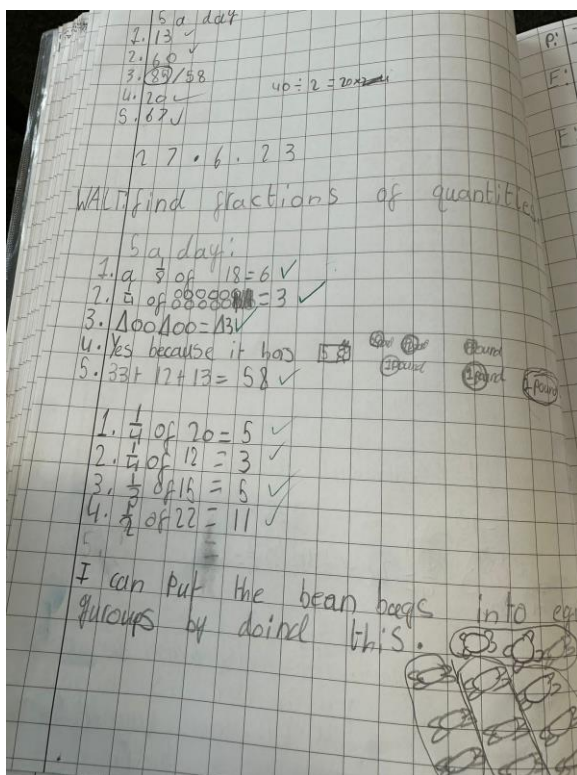 5 a day
1. 13 ✓
2. 60 ✓
3. 85/58
4. 20 ✓
5. 67 ✓
40 ÷ 2 = 20
27.6.23
WALT find fractions of quantities
5 a day:
1. a ⅓ of 18 = 6 ✓
2. ¼ of = 3 ✓
3. △○○△○○ = △3 ✓
4. Yes because it has
1 pound
1 pound
1 pound
5. 33 + 12 + 13 = 58 ✓
1. ¼ of 20 = 5 ✓
2. ¼ of 12 = 3 ✓
3. ⅓ of 15 = 5 ✓
4. ½ of 22 = 11 ✓
5. =
I can put the bean baegs into
guroups by doind this.
P:
E:
E